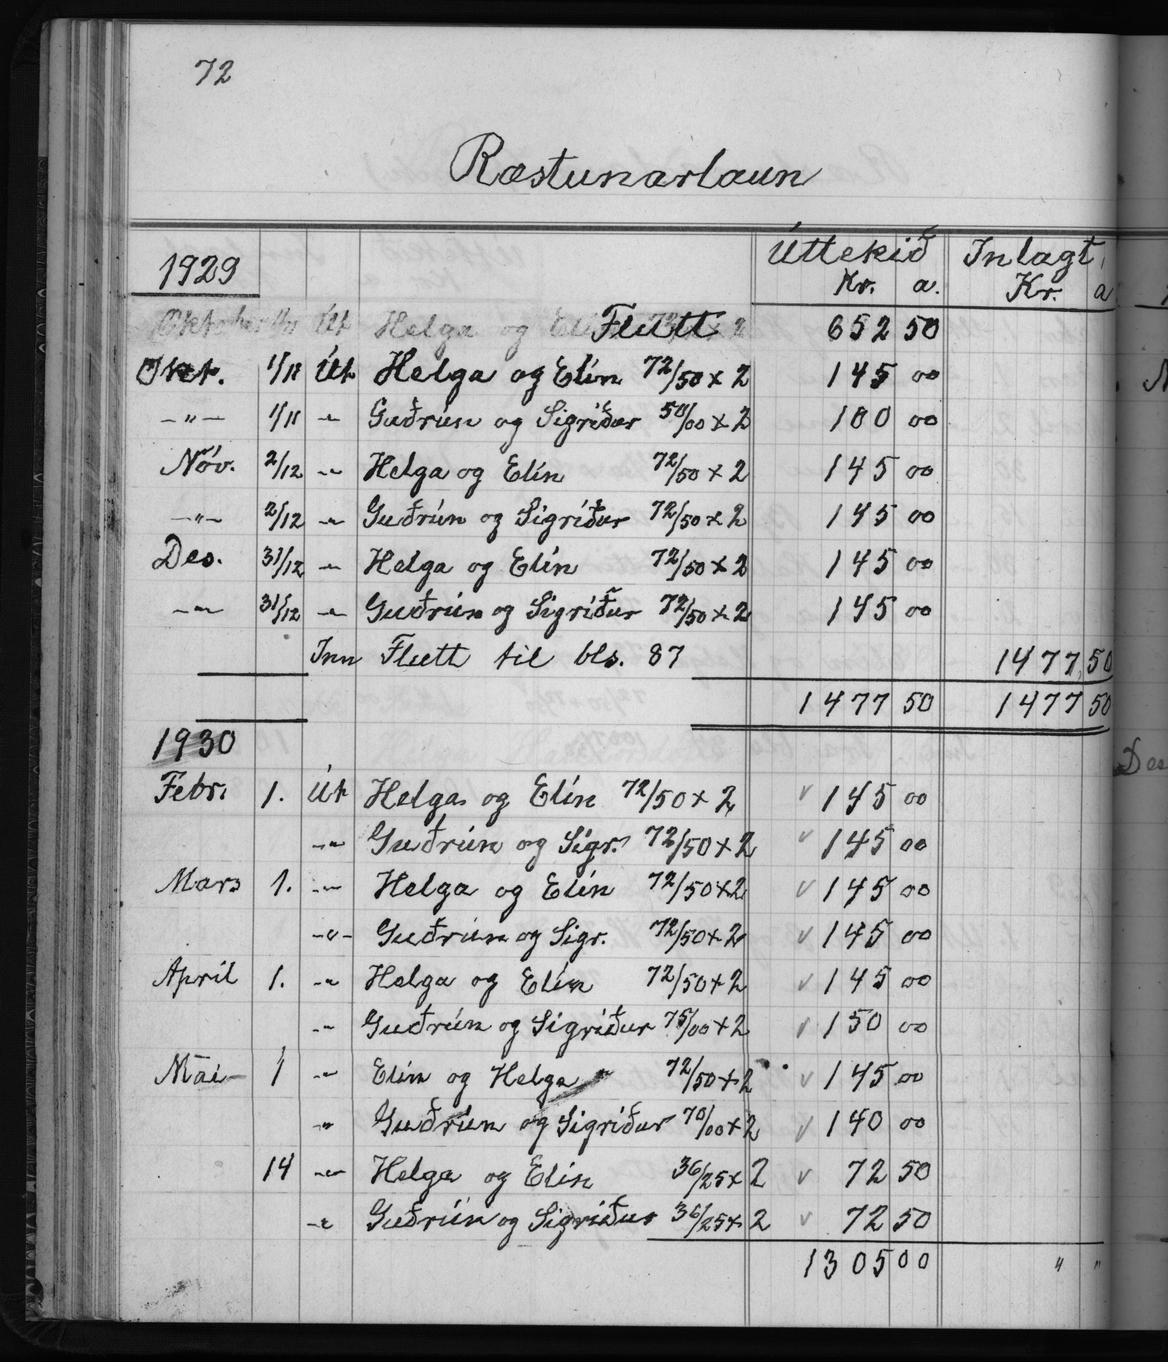 72
Ræstunarlaun
1929 Úttekið Inlagt
Kr. a. Kr. a
Flutt 652 50
Okt. 1/11 Út Helga og Elín 72/50 x 2 145 00
-"- 1/11 -"- Guðrún og Sigríður 50/00 x 2 100 00
Nóv. 2/12 -"- Helga og Elín 72/50 x 2 145 00
-"- 2/12 -"- Guðrún og Sigríður 72/50 x 2 145 00
Des. 31/12 -"- Helga og Elín 72/50 x 2 145 00
-"- 31/12 -"- Guðrún og Sigríður 72/50 x 2 145 00
Inn Flutt til bls. 87 1477,50
1477 50 1477 50
1930
Febr. 1. Út Helga og Elín 72/50 x 2 145 00
-"- Guðrún og Sigr. 72/50 x 2 145 00
Mars 1. -"- Helga og Elín 72/50 x 2 145 00
-"- Guðrún og Sigr. 72/50 x 2 145 00
Apríl 1. -"- Helga og Elín 72/50 x 2 145 00
-"- Guðrún og Sigríður 75/00 x 2 150 00
Mai 1 -"- Elín og Helga 72/50 x 2 145 00
" Guðrún og Sigríður 70/00 x 2 140 00
14 -"- Helga og Elín 36/25 x 2 72 50
-"- Guðrún og Sigríður 36/25 x 2 72 50
1305 00 " "